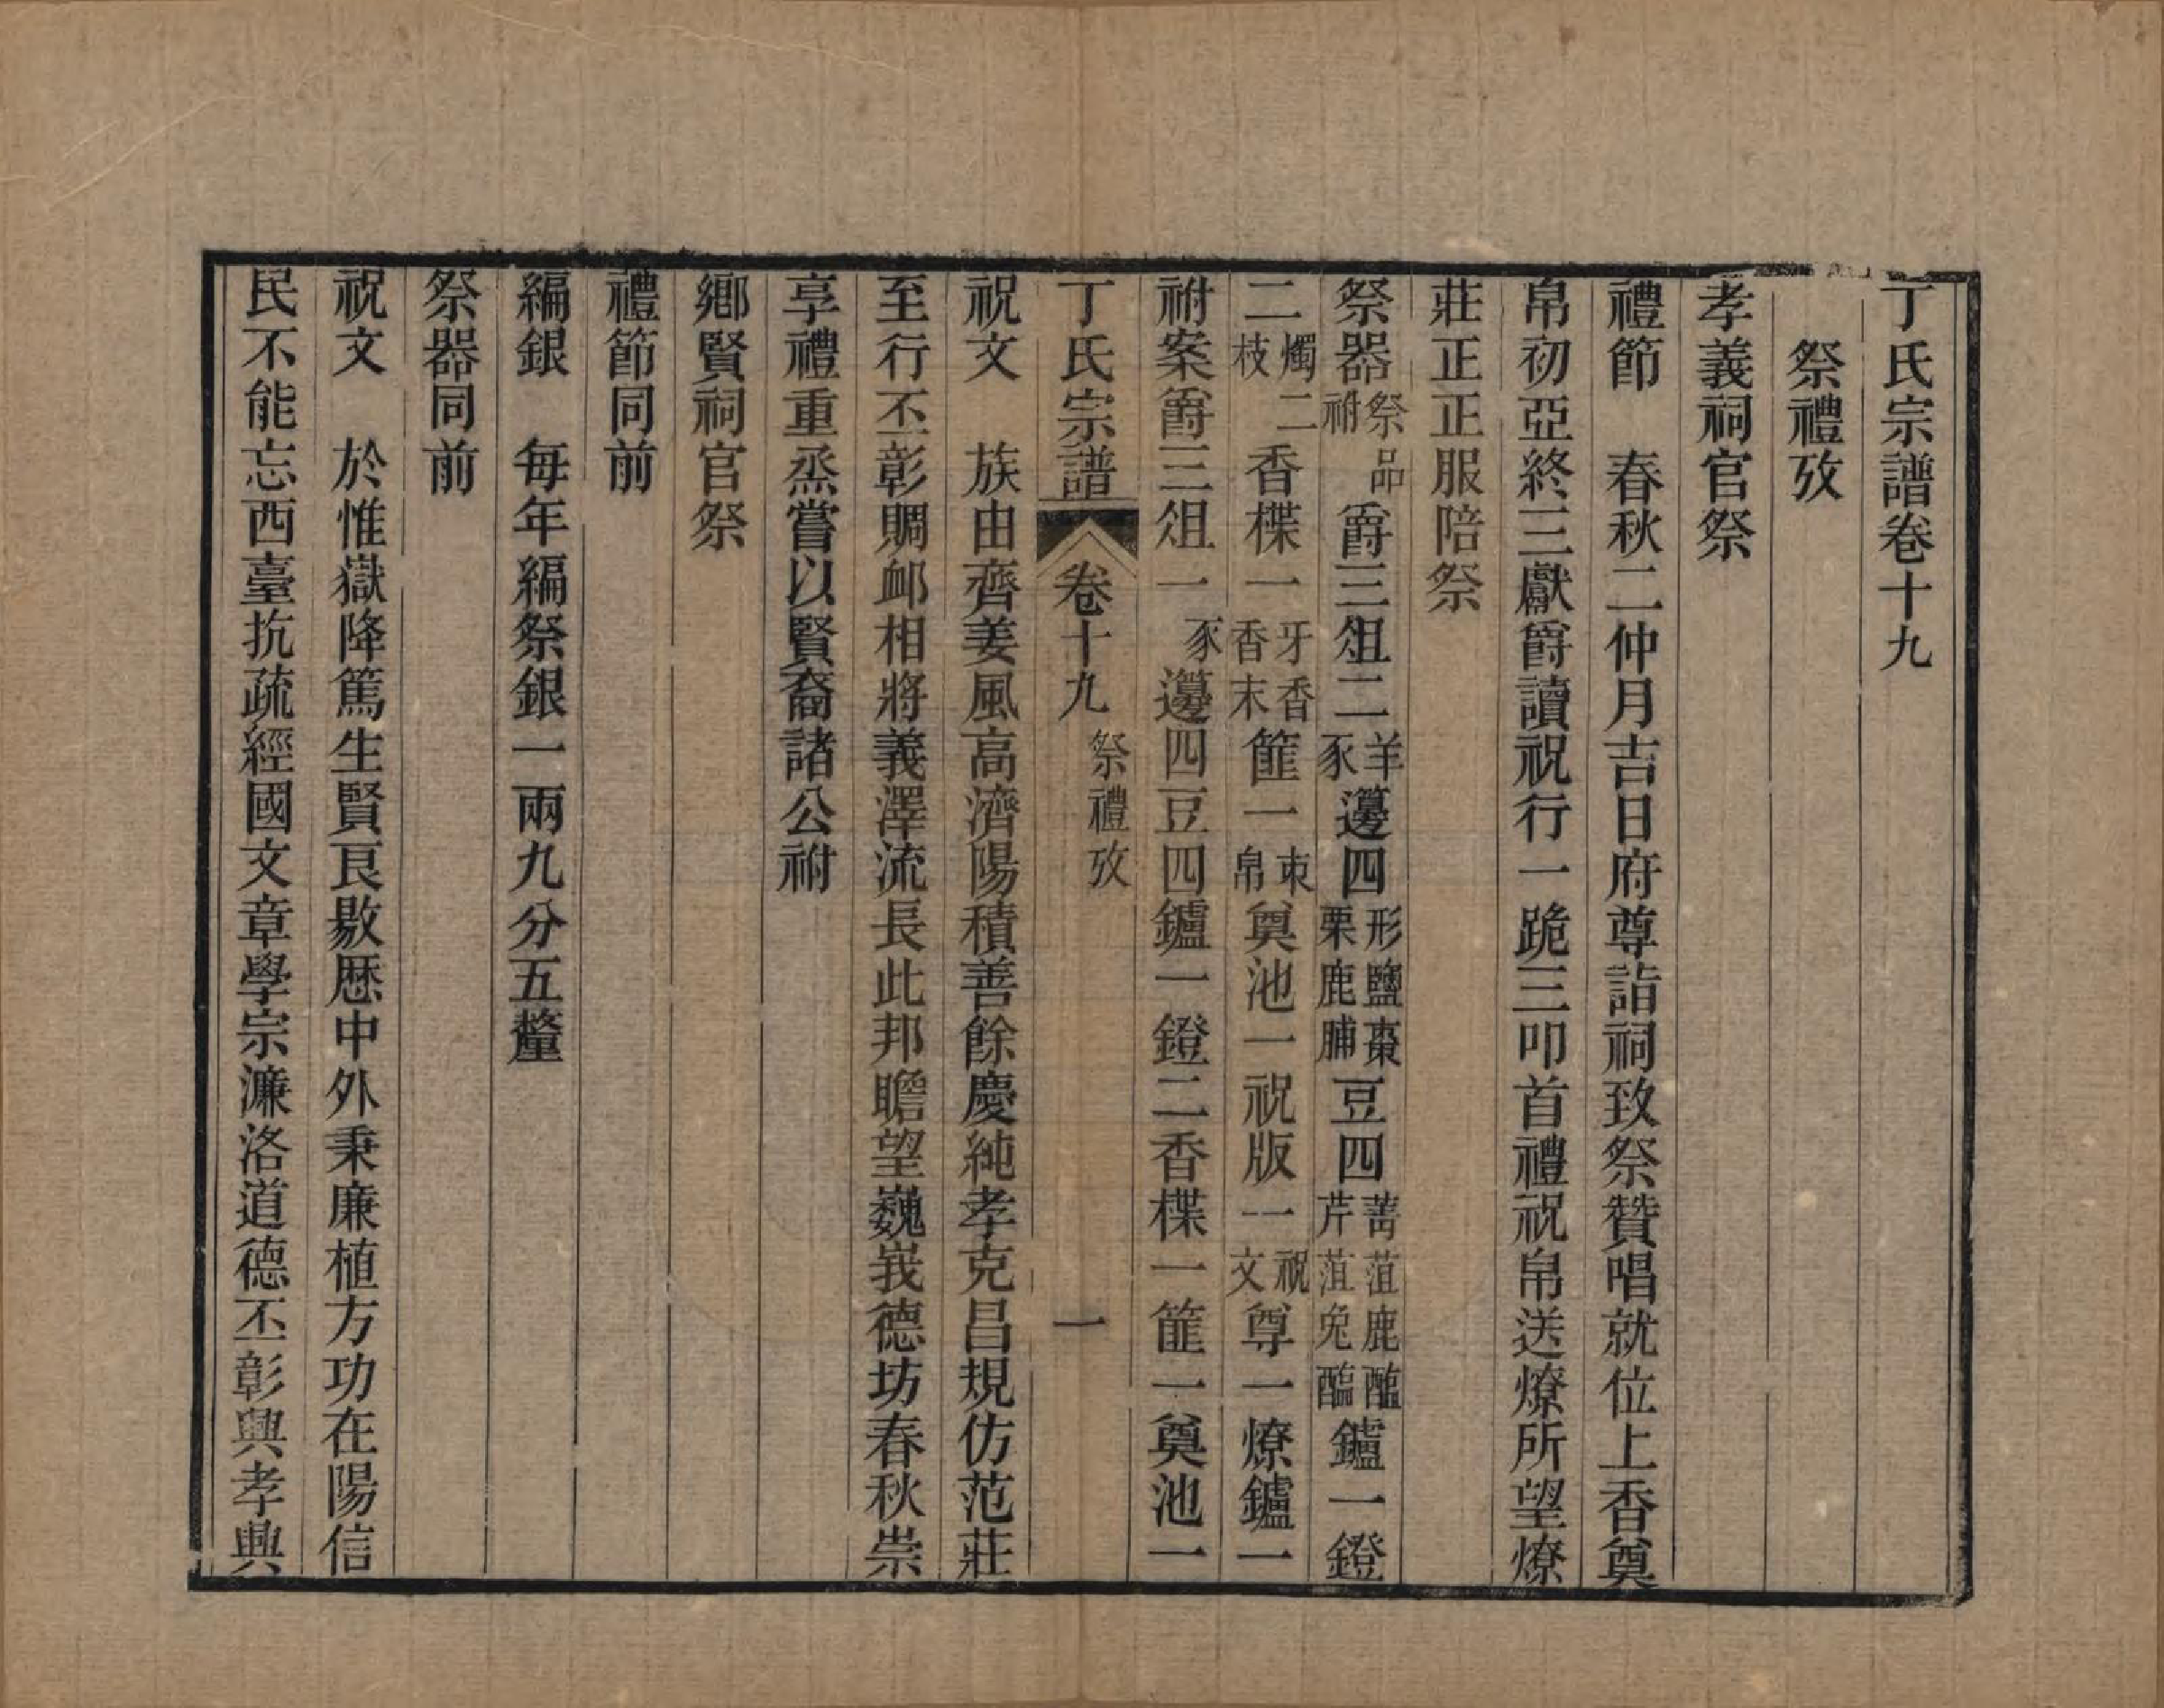 丁氏宗譜卷十九
祭禮攷
孝義祠官祭
禮節　春秋二仲月吉日府尊詣祠致祭贊唱就位上香奠
帛初亞終三獻爵讀祝行一跪三叩首禮祝帛送燎所望燎
莊正正服陪祭
祭器祭品祔爵三俎二羊豕籩四形鹽棗栗鹿脯豆四菁菹鹿醢芹菹兔醢鑪一鐙
二燭二枝香楪一牙香香末篚一束帛奠池一祝版一祝文尊一燎鑪一
祔案爵三俎一豕籩四豆四鑪一鐙二香楪一篚一奠池一
丁氏宗譜　卷十九　祭禮攷　一
祝文　族由齊姜風高濟陽積善餘慶純孝克昌規仿范莊
至行丕彰賙卹相將義澤流長此邦瞻望巍峩德坊春秋崇
享禮重烝嘗以賢裔諸公祔
鄉賢祠官祭
禮節同前
編銀　每年編祭銀一兩九分五釐
祭器同前
祝文　於惟嶽降篤生賢良敭歷中外秉廉植方功在陽信
民不能忘西臺抗疏經國文章學宗濂洛道德丕彰興孝興